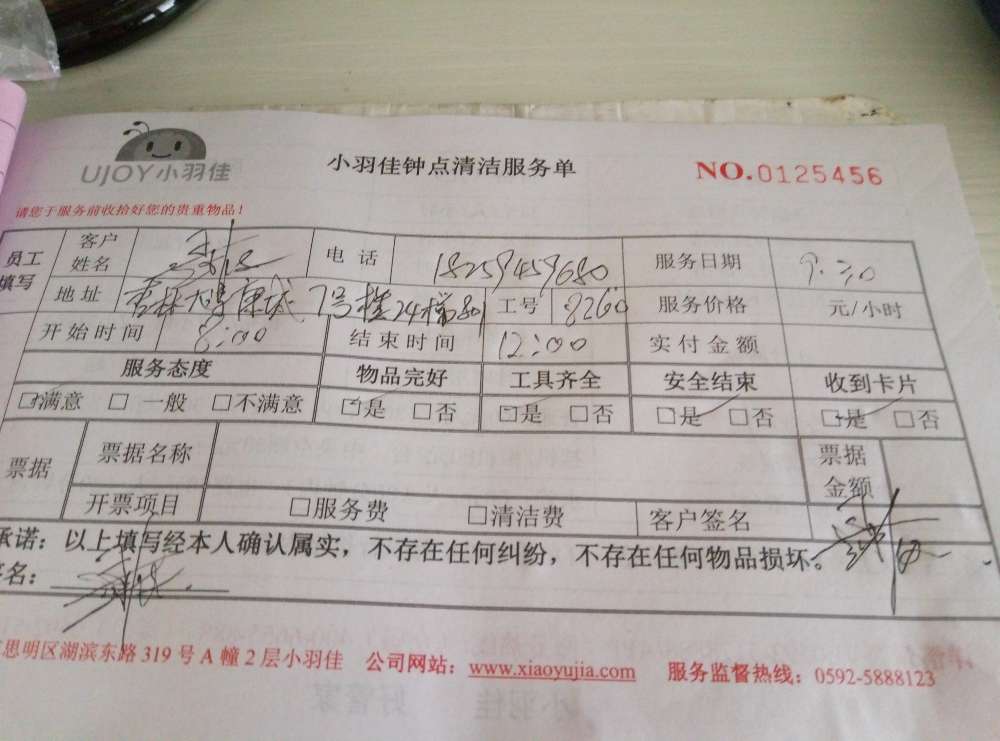 UJOY小羽佳
小羽佳钟点清洁服务单
NO.0125456
请您于服务前收拾好您的贵重物品！
员工填写 客户姓名 电话 18259459680 服务日期 9:30
地址 杏林 康城 7号楼24梯801 工号 8260 服务价格 元/小时
开始时间 8:00 结束时间 12:00 实付金额
服务态度 物品完好 工具齐全 安全结束 收到卡片
☑满意 □一般 □不满意 ☑是 □否 ☑是 □否 ☑是 □否 ☑是 □否
票据 票据名称 票据金额
开票项目 □服务费 □清洁费 客户签名
承诺：以上填写经本人确认属实，不存在任何纠纷，不存在任何物品损坏。
签名：
思明区湖滨东路319号A幢2层小羽佳 公司网站：www.xiaoyujia.com 服务监督热线：0592-5888123